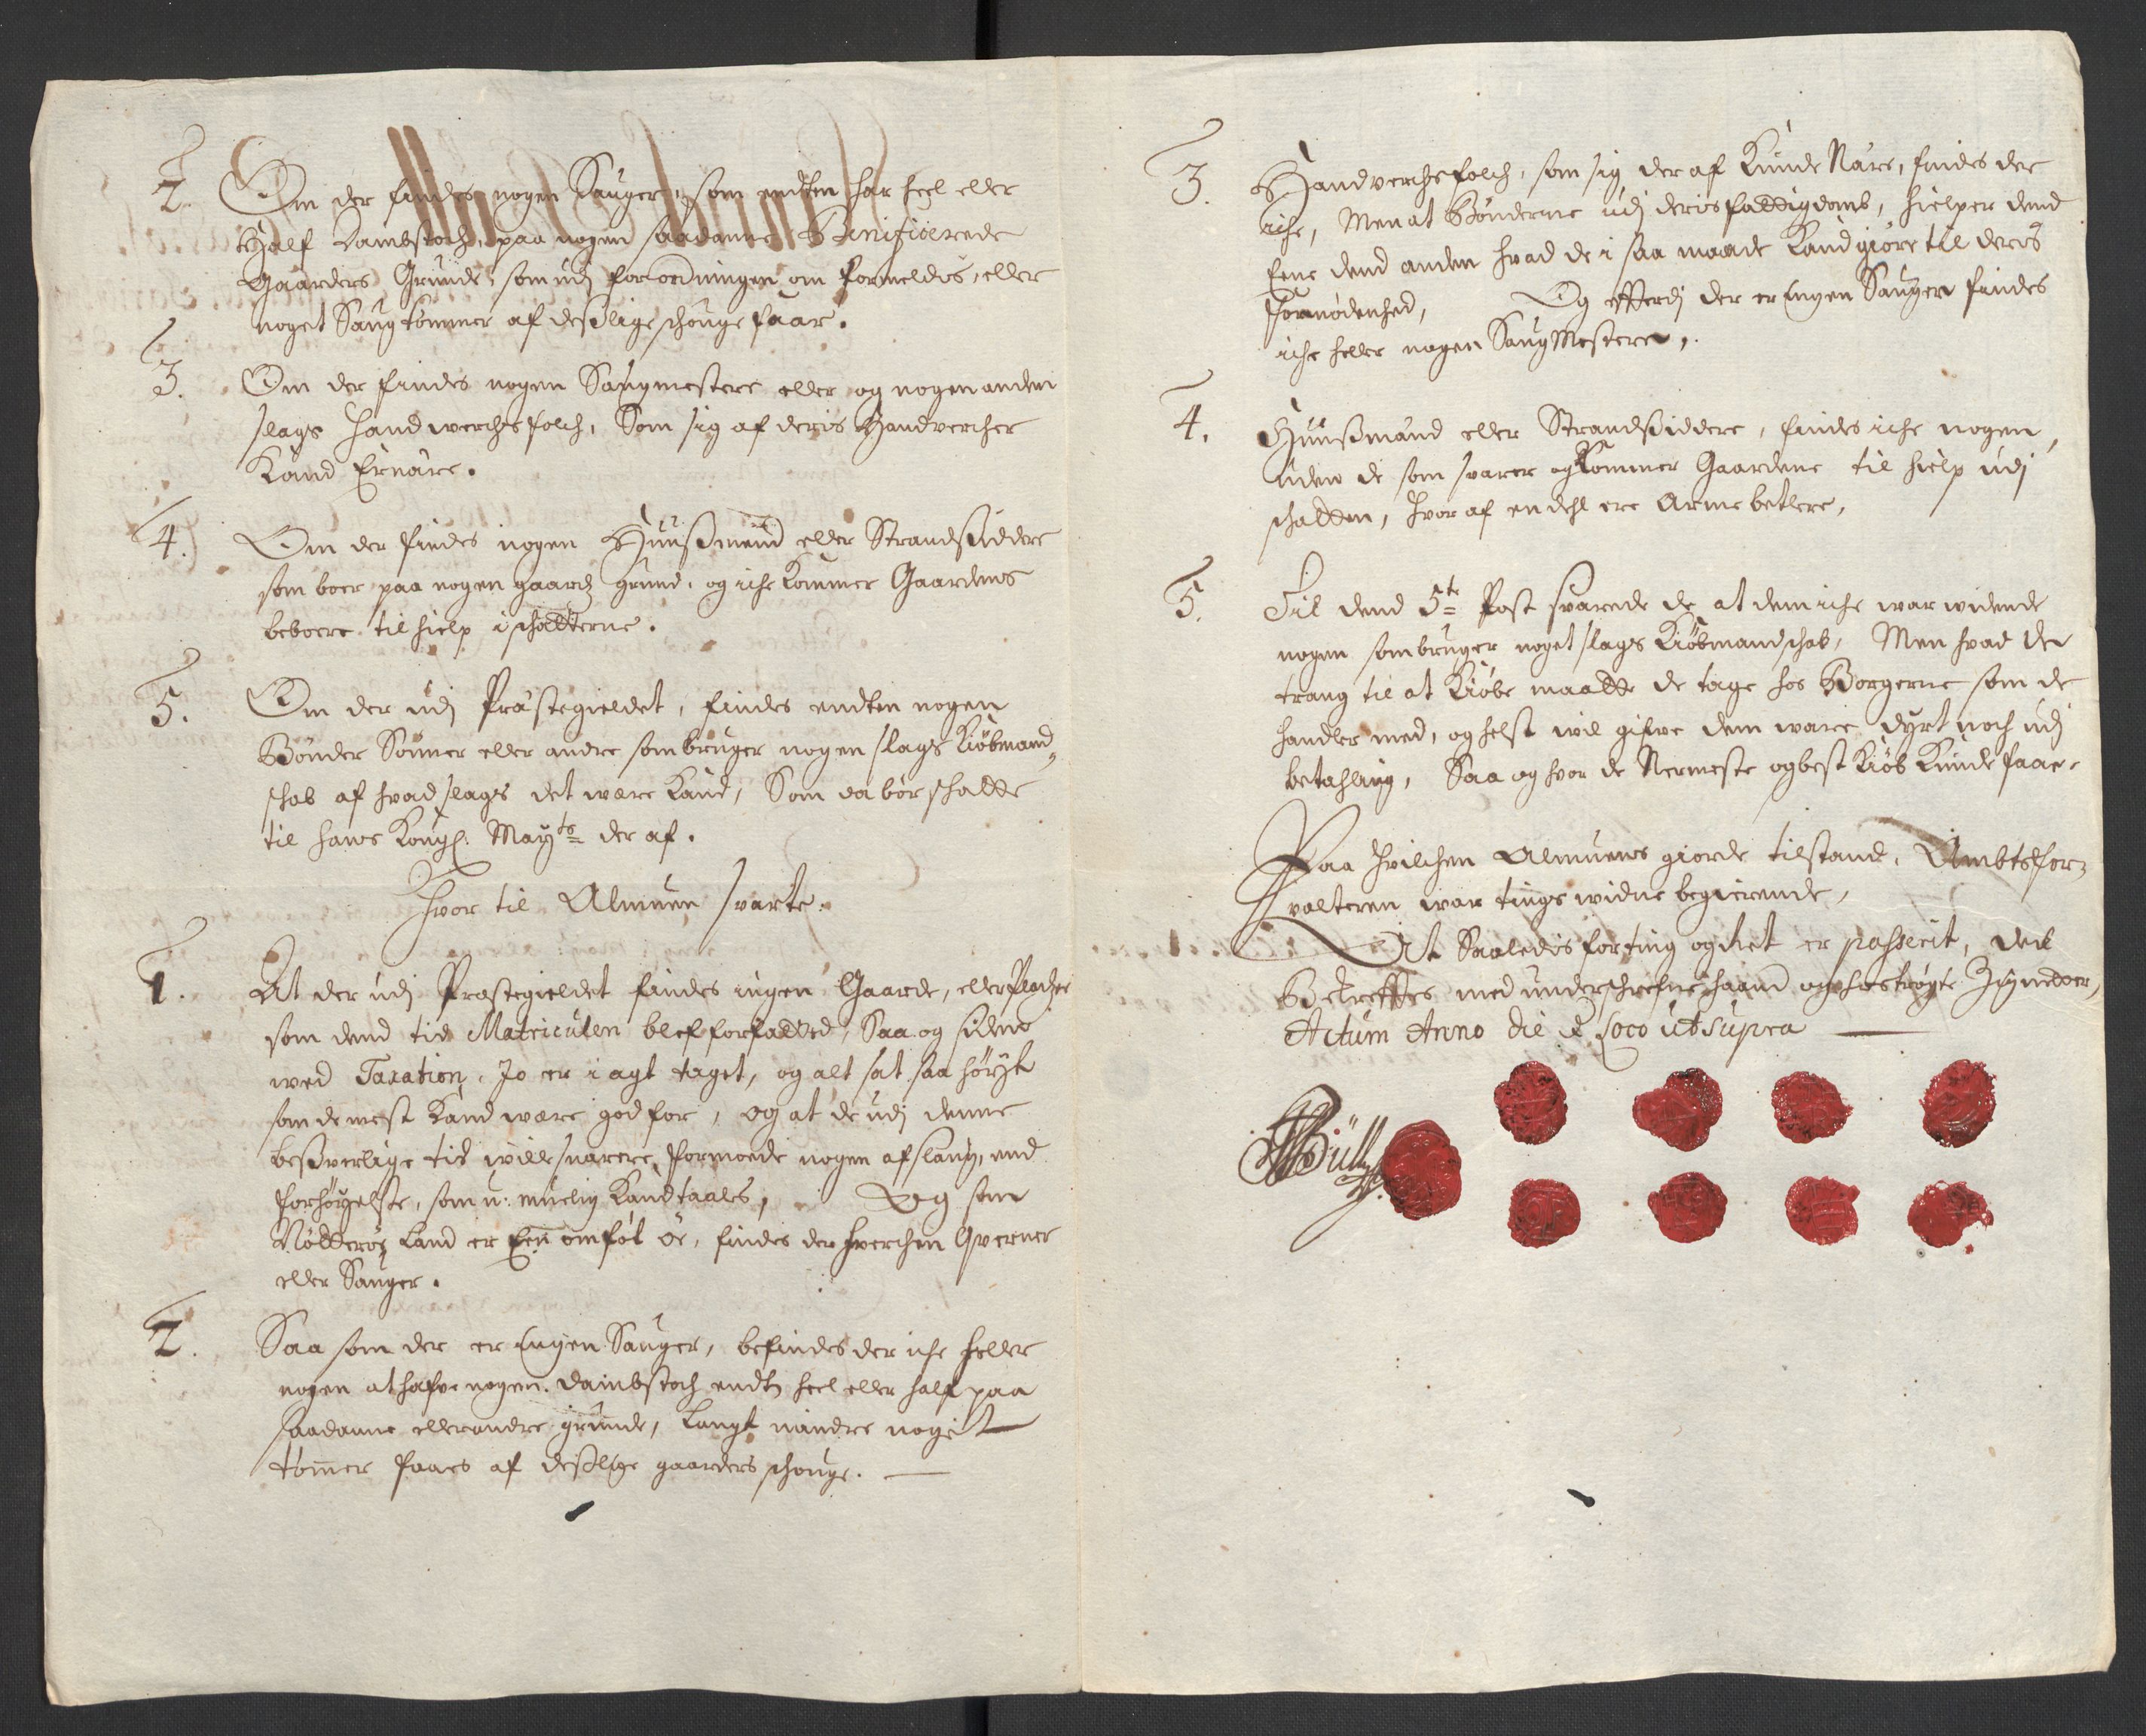 2. Om der findes nogen Sauger, som endten har heel eller
Half Dambstoch, paa nogen saadanne Benificerede
Gaarders Grunde, som udj forordningen om formeldis, eller
noget Saug tømmer af deslige schouge faar.
3. Om der findes nogen Saugmestere eller og nogen anden
slags Handwerchsfolch, Som sig af deris Handvercher
Kand Ernære.
4. Om der findes nogen Huusmend eller Strandsiddere
som boer paa nogen gaards grund, og iche kommer Gaardens
beboere til hielp i schatterne.
5. Om der udj Præstegieldet, findes endten nogen
Bønder Sønner eller andre som bruger nogen slags Kiøbmand-
schab af hvad slags det være Kand, Som da bør schatte
til hans Kongl: Mayts der af.
Hvor til Almuen svarte.
1. At der udj Præstegieldet findes ingen Gaarde, eller Pladzer
som dend tid Matriculen blef forfatted, Saa og siden
ved Taxation, Jo er i agt taget, og alt sat saa høyt
som de mest Kand være god for, og at de udj denne
besverlige tid wille snarere formoede nogen afslaug, end
forhøyelse, som u-muelig Kand taales, Og som
Nøtterøe Land er Een omfløt Øe, findes der hverchen Qverner
eller Sauger.
2. Saa som der er Engen Sauger, befindes der iche heller
nogen at hafve nogen Dambstoch endten heel eller half paa
saadanne eller andre grunde, langt mindre noget
tømer faaes af deslige gaarders schouge.
3. Handverchsfolch, som sig der af Kunde Nære, findes der
iche, Men at Bønderne udj deris fattigdomb, hielper dend
Eene dend anden hvad de i saa maade Kand giøre til deris
fornødenhed, Og efterdj der er Engen Sauger findes
iche heller nogen SaugMestere,
4. Huusmænd eller Strandsiddere, findes iche nogen,
uden de som svarer og Kommer Gaardene til hielp udj
schatten, hvor af en dehl ere Arme betlere,
5. Til dend 5te Post svarede de at dem iche war widende
nogen som bruger noget slags Kiøbmandschab, Men hvad de
trang til at Kiøbe maatte de tage hos Borgerne som de
handler med, og helst wil gifve dem ware dyrt noch udj
betahling, Saa og hvor de Nermeste og best Kiøb Kunde faae.
Paa hvilchen Almuens giorde tilstand, Ambtsfor-
valteren war tings widne begierende,
At Saaledis for ting og Ret er passerit, det
Bekreftes med underschrefne haand og hostrøgte Zigneter,
Actum Anno die & Loco ut supra